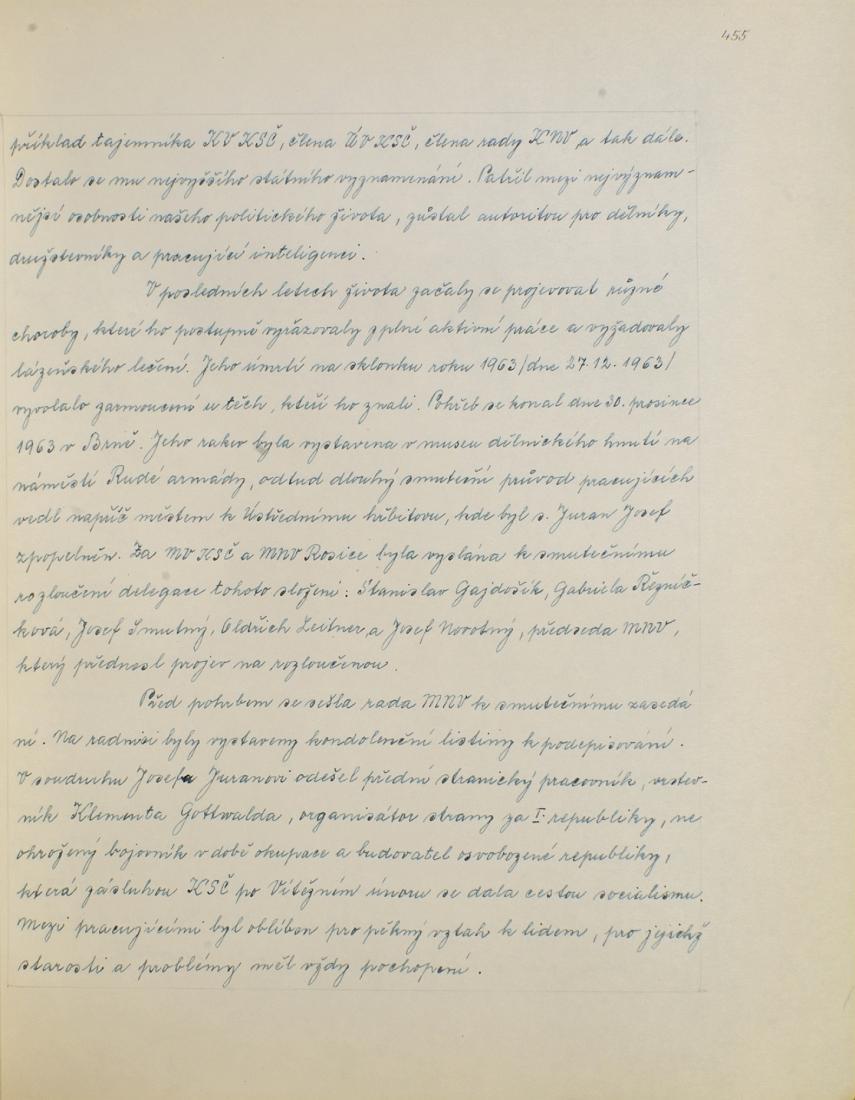 455
příklad tajemníka KV KSČ, člena ÚV KSČ, člena rady KNV, a tak dále.
Dostalo se mu nejvyššího státního vyznamenání. Patřil mezi nejvýznam-
nější osobnosti našeho politického života, zůstal autoritou pro dělníky,
družstevníky a pracující inteligenci.
V posledních letech života začaly se projevovat různé
choroby, které ho postupně vyřazovaly z plné aktivní práce a vyžadovaly
lázeňského lečení. Jeho úmrtí na sklonku roku 1963/dne 27.12.1963/
vyvolalo zarmoucení u těch, kteří ho znali. Pohřeb se konal dne 30. prosince
1963 v Brně. Jeho rakev byla vystavena v museu dělnického hnutí na
náměstí Rudé armády, odtud dlouhý smuteční průvod pracujících
vedl napříč městem k Ústřednímu hřbitovu, kde byl s. Juran Josef
zpopelněn. Za MV KSČ a MNV Rosice byla vyslána k smutečnímu
rozloučení delegace tohoto složení: Stanislav Gajdošík, Gabriela Řeznič-
ková, Josef Smutný, Oldřich Leitner, a Josef Novotný, předseda MNV,
který přednesl projev na rozloučenou.
Před pohřbem se sešla rada MNV k smutečnímu zasedá
ní. Na radnici byly vystaveny kondolenční listiny k podepisování.
V soudruhu Josefa Juranovi odešel přední stranický pracovník, vrstev-
ník Klementa Gottwalda, organisátor strany za I. republiky, ne
ohrožený bojovník v době okupace a budovatel osvobozené republiky,
která zásluhou KSČ po Vítězném únoru se dala cestou socialismu.
Mezi pracujícími byl oblíben pro pěkný vztah k lidem, pro jejichž
starosti a problémy měl vždy pochopení.